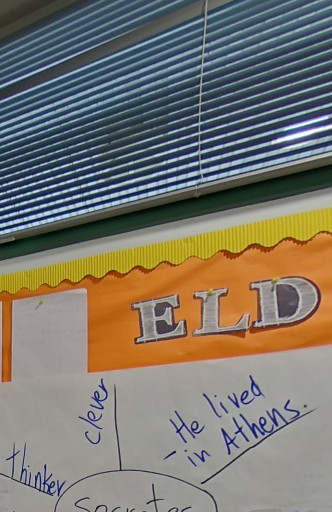 ELD
clever
- He lived
in Athens.
thinker
Socrates